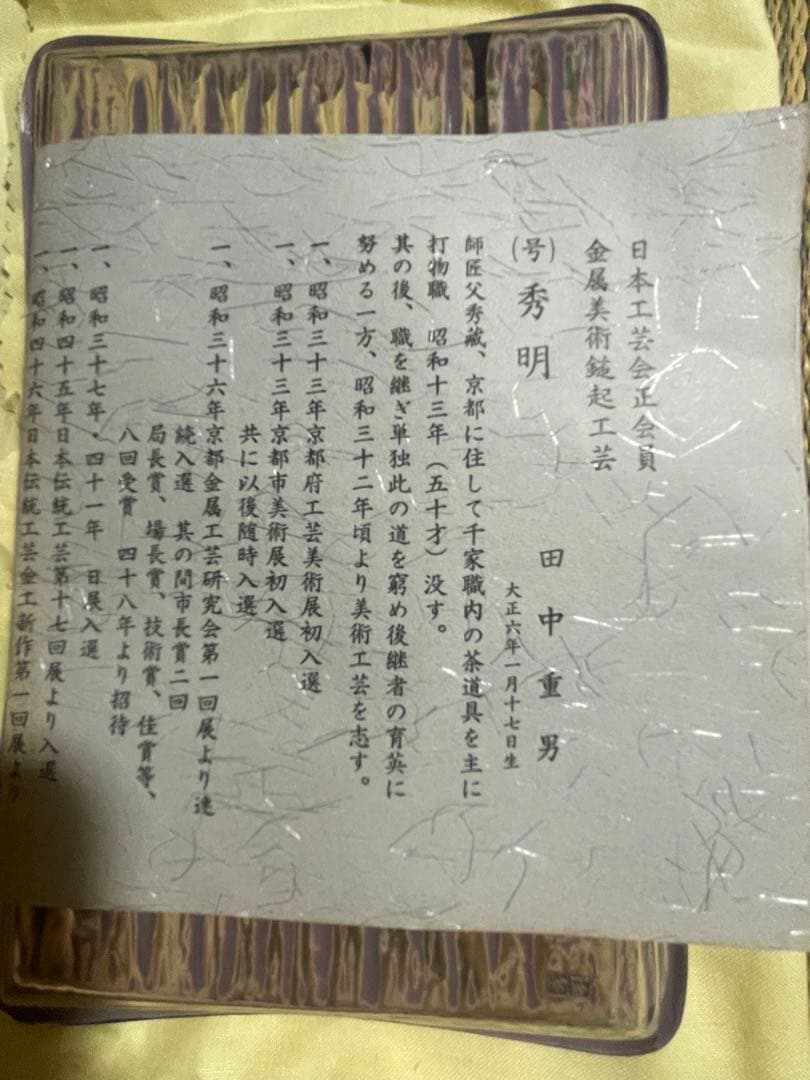 日本工芸会正会員
金属美術鎚起工芸
(号)秀明 田中重男
大正六年一月十七日生
師匠父秀藏、京都に住して千家職内の茶道具を主に
打物職 昭和十三年(五十才)没す。
其の後、職を継ぎ単独此の道を窮め後継者の育英に
努める一方、昭和三十二年頃より美術工芸を志す。
一、昭和三十三年京都府工芸美術展初入選
一、昭和三十三年京都市美術展初入選
共に以後随時入選
一、昭和三十六年京都金属工芸研究会第一回展より連
続入選 其の間市長賞二回
局長賞、場長賞、技術賞、佳賞等、
八回受賞 四十八年より招待
一、昭和三十七年・四十一年 日展入選
一、昭和四十五年日本伝統工芸第十七回展より入選
一、昭和四十六年日本伝統工芸金工新作第一回展より